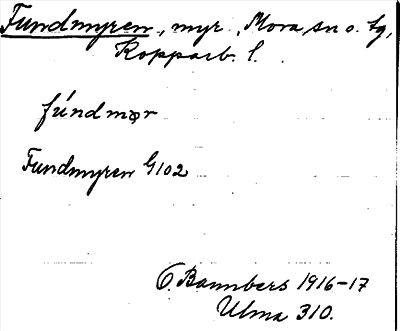 Fundmyren, myr, Mora sn o. tg,
Kopparb. l.
fúndmær
Fundmyren G102
O. Bannbers 1916-17
Ulma 310.